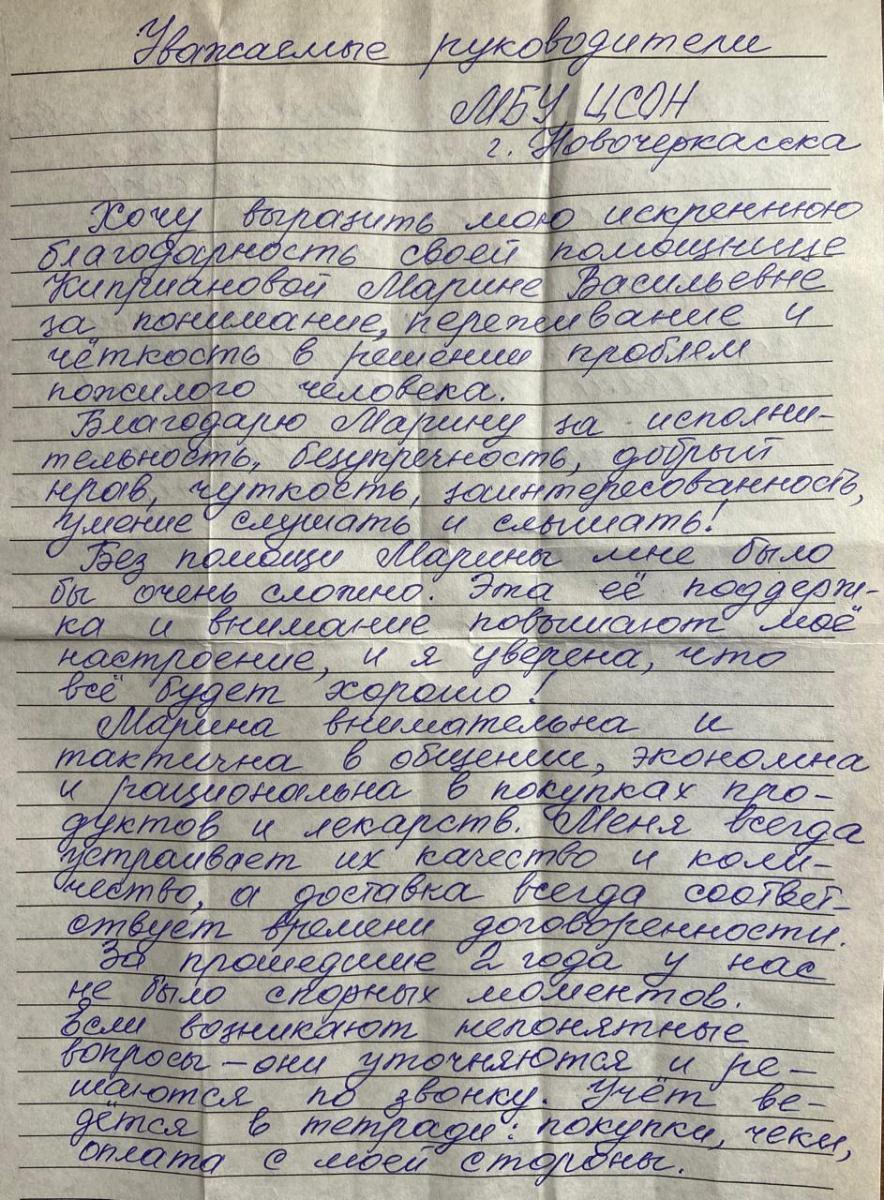 Уважаемые руководители
МБУ ЦСОН
г. Новочеркасска
Хочу выразить мою искреннюю
благодарность своей помощнице
Киприановой Марине Васильевне
за понимание, переживание и
чёткость в решении проблем
пожилого человека.
Благодарю Марину за исполни-
тельность, безупречность, добрый
нрав, чуткость, заинтересованность,
умение слушать и слышать!
Без помощи Марины мне было
бы очень сложно. Эта её поддерж-
ка и внимание повышают моё
настроение, и я уверена, что
всё будет хорошо!
Марина внимательна и
тактична в общении, экономна
и рациональна в покупках про-
дуктов и лекарств. Меня всегда
устраивает их качество и коли-
чество, а доставка всегда соответ-
ствует времени договоренности.
За прошедшие 2 года у нас
не было спорных моментов.
Если возникают непонятные
вопросы – они уточняются и ре-
шаются по звонку. Учёт ве-
дётся в тетради: покупки, чеки,
оплата с моей стороны.